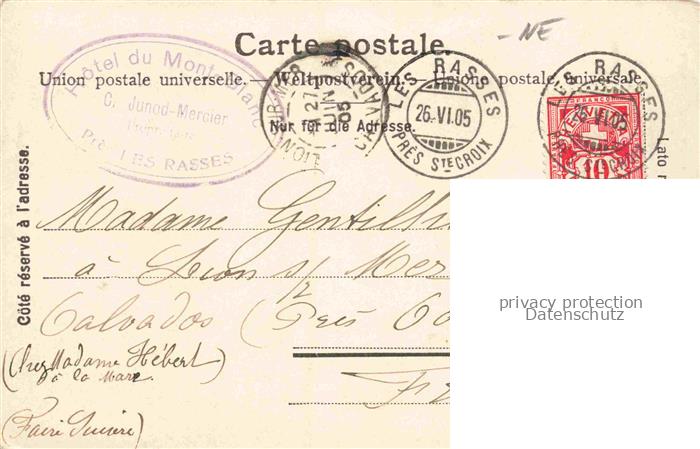 - NE
Carte postale.
Union postale universelle. — Weltpostverein. — Unione postale universale.
Nur für die Adresse.
Côté réservé à l'adresse.
Lato r
Hôtel du Mont-Blanc
C. Junod-Mercier
Propriétaire
Près LES RASSES
LION-SUR-MER
27
JUIN
05
CALVADOS
LES RASSES
26.VI.05
PRÈS STE CROIX
RASSES
VI.05
CROIX
FRANCO
10
Madame Gentilh
à Lion s/ Mer
Calvados (Près Ca
(Chez Madame Hébert)
à la Mare
F
privacy protection
Datenschutz